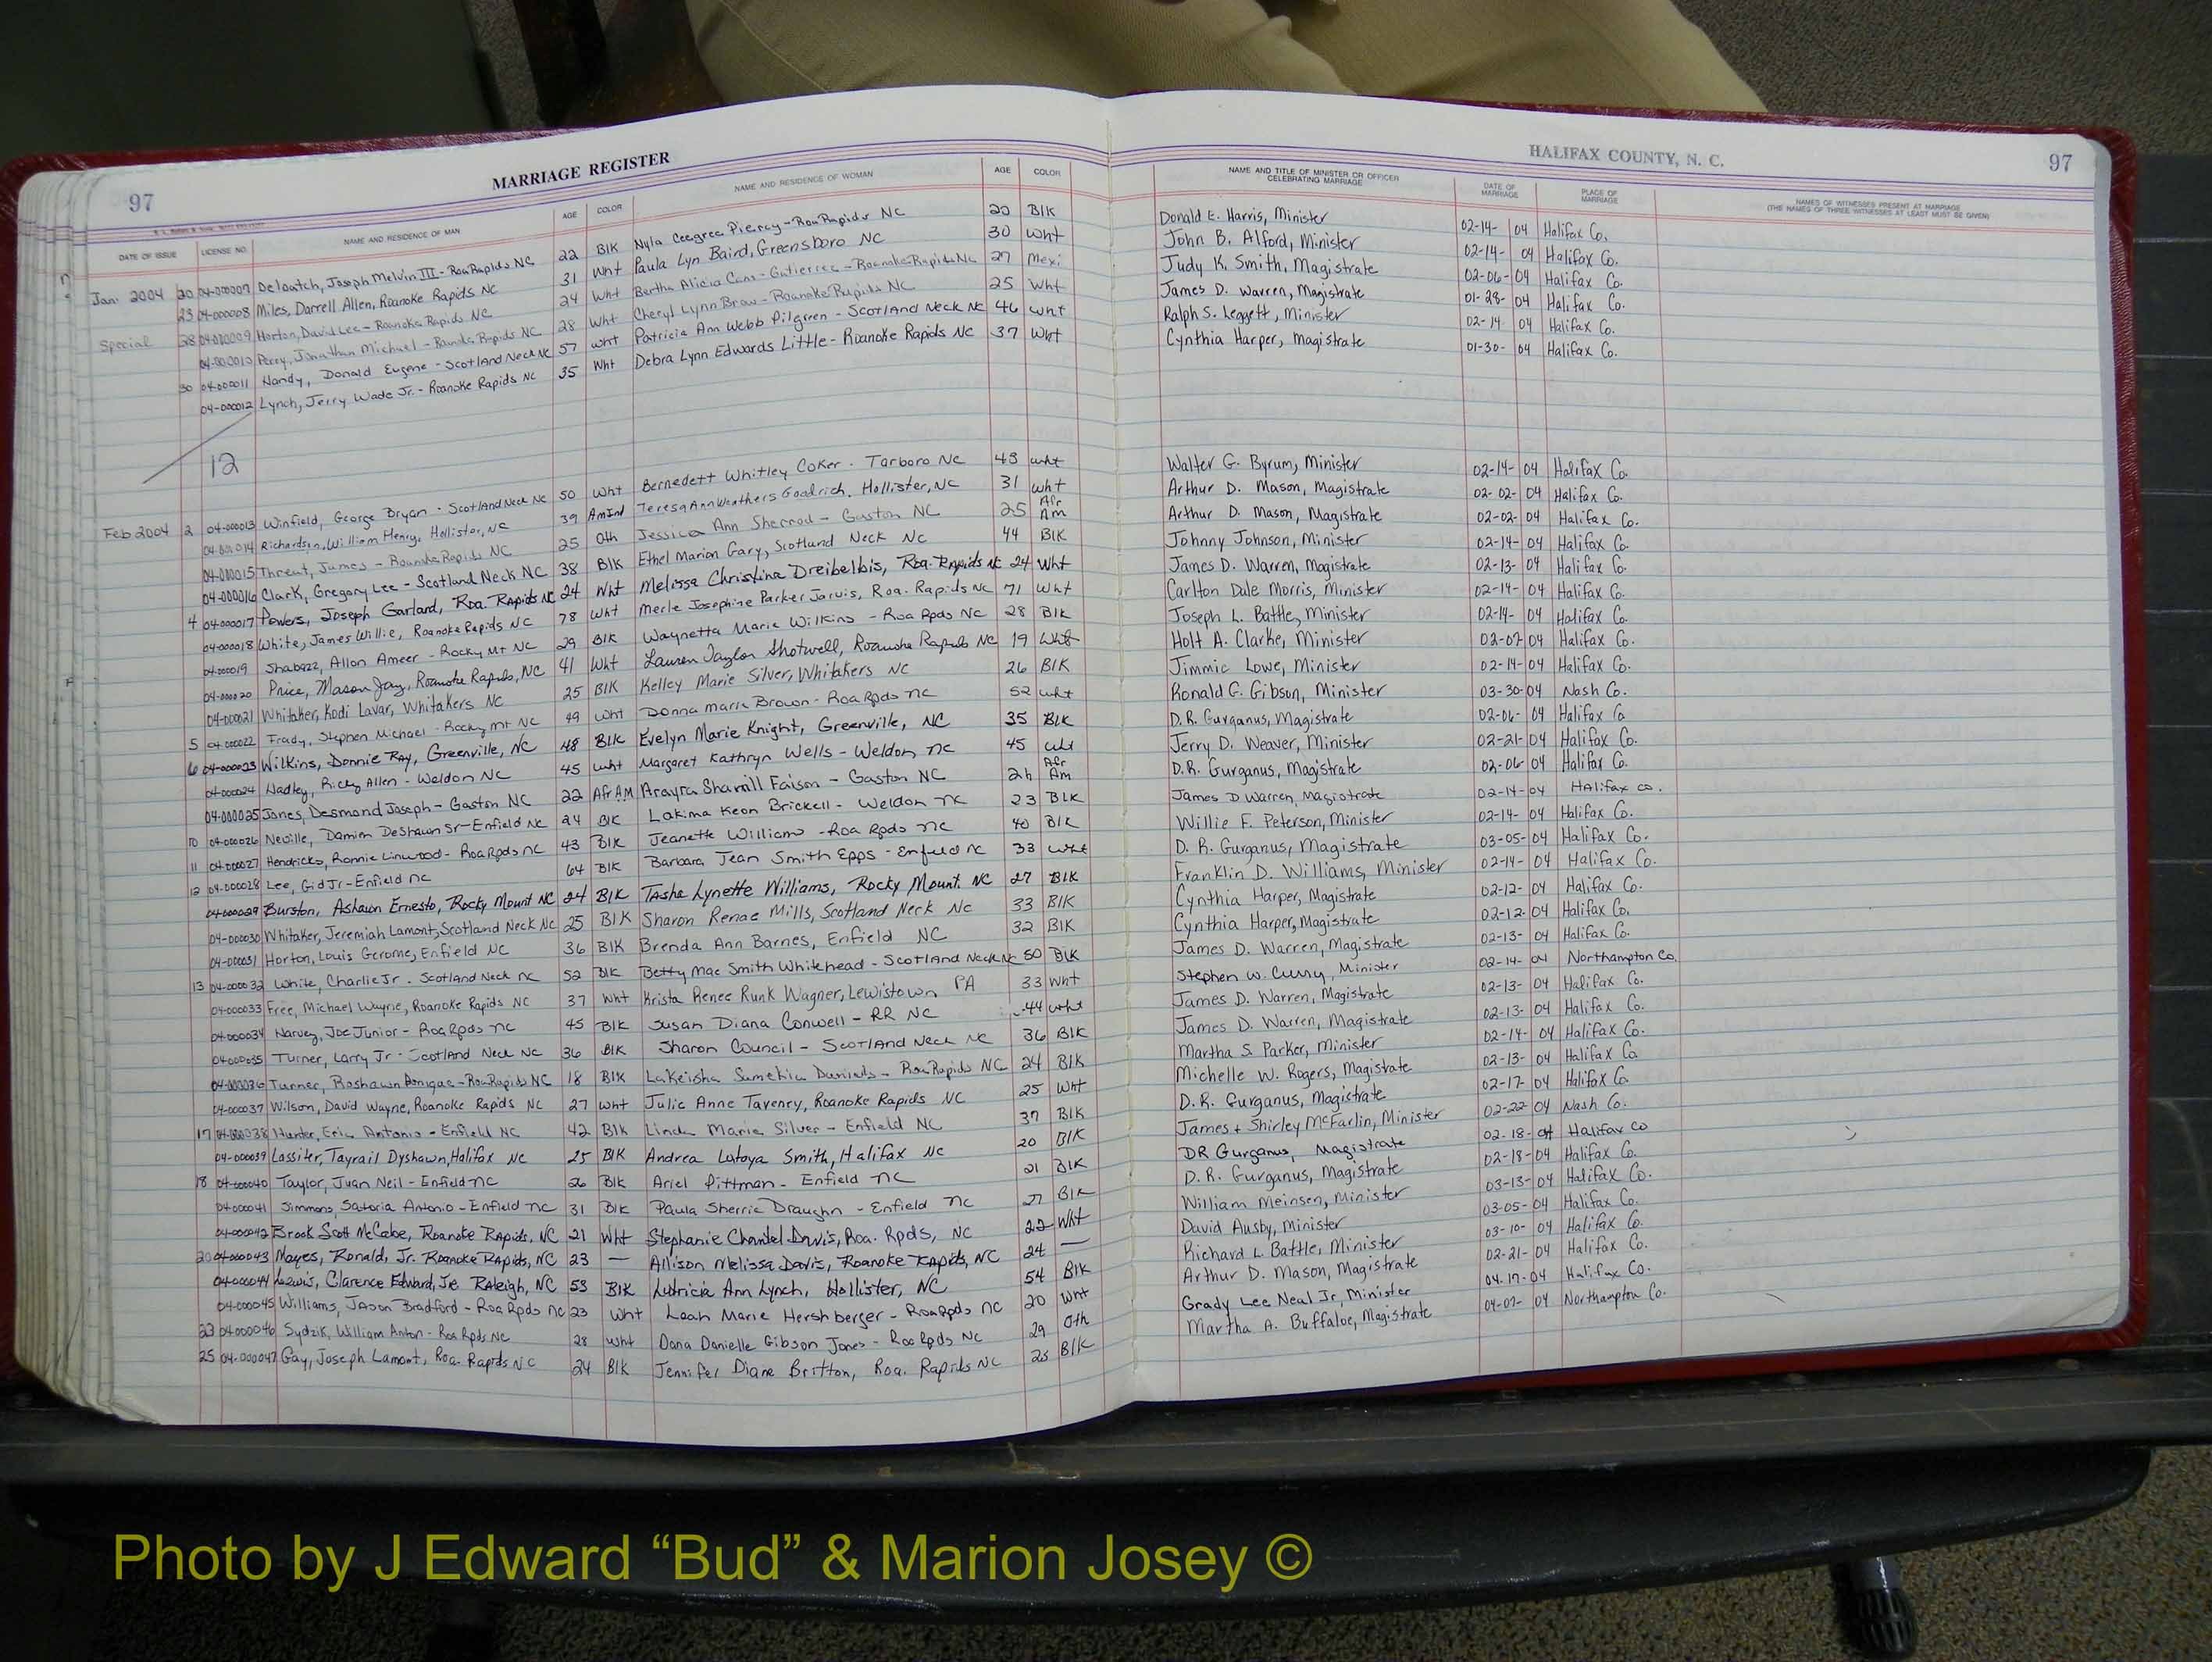 97 MARRIAGE REGISTER
HALIFAX COUNTY, N. C. 97
DATE OF ISSUE LICENSE NO. NAME AND RESIDENCE OF MAN AGE COLOR NAME AND RESIDENCE OF WOMAN AGE COLOR NAME AND TITLE OF MINISTER OR OFFICER CELEBRATING MARRIAGE DATE OF MARRIAGE PLACE OF MARRIAGE NAMES OF WITNESSES PRESENT AT MARRIAGE (THE NAMES OF THREE WITNESSES AT LEAST MUST BE GIVEN)
Jan. 2004 20 04-000007 Deloatch, Joseph Melvin III - Roa Rapids NC 22 Blk Nyla Piercy - Roa Rapids NC 20 Blk Donald E. Harris, Minister 02-14-04 Halifax Co.
23 04-000008 Miles, Darrell Allen, Roanoke Rapids NC 31 Wht Paula Lyn Baird, Greensboro NC 30 Wht John B. Alford, Minister 02-14-04 Halifax Co.
Special 28 04-000009 Horton, David Lee - Roanoke Rapids NC 24 Wht Bertha Alicia Cans-Gutierrez - Roanoke Rapids NC 27 Mexi Judy K. Smith, Magistrate 02-06-04 Halifax Co.
04-000010 Perry, Jonathan Michael - Roanoke Rapids NC 28 Wht Cheryl Lynn Brow - Roanoke Rapids NC 25 Wht James D. Warren, Magistrate 01-28-04 Halifax Co.
30 04-000011 Handy, Donald Eugene - Scotland Neck NC 57 Wht Patricia Ann Webb Pilgreen - Scotland Neck NC 46 Wht Ralph S. Leggett, Minister 02-14-04 Halifax Co.
04-000012 Lynch, Jerry Wade Jr. - Roanoke Rapids NC 35 Wht Debra Lynn Edwards Little - Roanoke Rapids NC 37 Wht Cynthia Harper, Magistrate 01-30-04 Halifax Co.
12
Feb 2004 2 04-000013 Winfield, George Bryan - Scotland Neck NC 50 Wht Bernedett Whitley Coker - Tarboro NC 43 Wht Walter G. Byrum, Minister 02-14-04 Halifax Co.
04-000014 Richardson, William Henry, Hollister, NC 39 AmInd Teresa Ann Weathers Goodrich, Hollister, NC 31 Wht Arthur D. Mason, Magistrate 02-02-04 Halifax Co.
04-000015 Threat, James - Roanoke Rapids NC 25 Oth Jessica Ann Sherrod - Gaston NC 25 Afr Am Arthur D. Mason, Magistrate 02-02-04 Halifax Co.
04-000016 Clark, Gregory Lee - Scotland Neck NC 38 Blk Ethel Marion Gary, Scotland Neck NC 44 Blk Johnny Johnson, Minister 02-14-04 Halifax Co.
4 04-000017 Powers, Joseph Garland, Roa. Rapids NC 24 Wht Melissa Christina Dreibelbis, Roa. Rapids NC 24 Wht James D. Warren, Magistrate 02-13-04 Halifax Co.
04-000018 White, James Willie, Roanoke Rapids NC 78 Wht Merle Josephine Parker Jarvis, Roa. Rapids NC 71 Wht Carlton Dale Morris, Minister 02-14-04 Halifax Co.
04-000019 Shabazz, Allon Ameer - Rocky Mt NC 29 Blk Waynetta Marie Wilkins - Roa Rpds NC 28 Blk Joseph L. Battle, Minister 02-14-04 Halifax Co.
04-000020 Price, Mason Jay, Roanoke Rapids, NC 41 Wht Lauren Taylor Shotwell, Roanoke Rapids NC 19 Wht Holt A. Clarke, Minister 02-07-04 Halifax Co.
04-000021 Whitaker, Kodi Lavar, Whitakers NC 25 Blk Kelley Marie Silver, Whitakers NC 26 Blk Jimmie Lowe, Minister 02-14-04 Halifax Co.
5 04-000022 Frady, Stephen Michael - Rocky Mt NC 49 Wht Donna Marie Brown - Roa Rpds NC 52 Wht Ronald G. Gibson, Minister 03-30-04 Nash Co.
6 04-000023 Wilkins, Donnie Ray, Greenville, NC 48 Blk Evelyn Marie Knight, Greenville, NC 35 Blk D.R. Gurganus, Magistrate 02-06-04 Halifax Co
04-000024 Hadley, Ricky Allen - Weldon NC 45 Wht Margaret Kathryn Wells - Weldon NC 45 Wht Jerry D. Weaver, Minister 02-21-04 Halifax Co.
04-000025 Jones, Desmond Joseph - Gaston NC 22 Afr AM Arayra Sharrill Faison - Gaston NC 26 Afr Am D.R. Gurganus, Magistrate 02-06-04 Halifax Co.
10 04-000026 Neville, Damien DeShawn Sr - Enfield NC 24 Blk Lakima Keon Brickell - Weldon NC 23 Blk James D Warren, Magistrate 02-14-04 Halifax Co.
11 04-000027 Hendricks, Ronnie Linwood - Roa Rpds NC 43 Blk Jeanette Williams - Roa Rpds NC 40 Blk Willie F. Peterson, Minister 02-14-04 Halifax Co.
12 04-000028 Lee, Gid Jr - Enfield NC 64 Blk Barbara Jean Smith Epps - Enfield NC 33 Wht D. R. Gurganus, Magistrate 03-05-04 Halifax Co.
04-000029 Burston, Ashawn Ernesto, Rocky Mount NC 24 Blk Tasha Lynette Williams, Rocky Mount NC 27 Blk Franklin D. Williams, Minister 02-14-04 Halifax Co.
04-000030 Whitaker, Jeremiah Lamont, Scotland Neck NC 25 Blk Sharon Renae Mills, Scotland Neck NC 33 Blk Cynthia Harper, Magistrate 02-12-04 Halifax Co.
04-000031 Horton, Louis Gerome, Enfield NC 36 Blk Brenda Ann Barnes, Enfield NC 32 Blk Cynthia Harper, Magistrate 02-12-04 Halifax Co.
13 04-000032 White, Charlie Jr. Scotland Neck NC 52 Blk Betty Mae Smith Whitehead - Scotland Neck NC 50 Blk James D. Warren, Magistrate 02-13-04 Halifax Co.
04-000033 Free, Michael Wayne, Roanoke Rapids NC 37 Wht Krista Renee Runk Wagner, Lewistown PA 33 Wht Stephen W. Curry, Minister 02-14-04 Northampton Co.
04-000034 Harvey, Joe Junior - Roa Rpds NC 45 Blk Susan Diana Conwell - RR NC 44 Wht James D. Warren, Magistrate 02-13-04 Halifax Co.
04-000035 Turner, Larry Jr - Scotland Neck NC 36 Blk Sharon Council - Scotland Neck NC 36 Blk James D. Warren, Magistrate 02-13-04 Halifax Co.
04-000036 Turner, Roshawn - Roa Rapids NC 18 Blk LaKeisha Daniels - Roa Rapids NC 24 Blk Martha S. Parker, Minister 02-14-04 Halifax Co.
04-000037 Wilson, David Wayne, Roanoke Rapids NC 27 Wht Julie Anne Tavenry, Roanoke Rapids NC 25 Wht Michelle W. Rogers, Magistrate 02-13-04 Halifax Co
17 04-000038 Hunter, Eric Antonio - Enfield NC 42 Blk Linda Marie Silver - Enfield NC 37 Blk D.R. Gurganus, Magistrate 02-17-04 Halifax Co
04-000039 Lassiter, Tayrail Dyshawn, Halifax NC 25 Blk Andrea Latoya Smith, Halifax NC 20 Blk James + Shirley McFarlin, Minister 02-22-04 Nash Co.
18 04-000040 Taylor, Juan Neil - Enfield NC 26 Blk Ariel Pittman - Enfield NC 21 Blk DR Gurganus, Magistrate 02-18-04 Halifax Co
04-000041 Simmons, Satoria Antonio - Enfield NC 31 Blk Paula Sherrie Draughn - Enfield NC 27 Blk D.R. Gurganus, Magistrate 02-18-04 Halifax Co.
04-000042 Brook Scott McCabe, Roanoke Rapids, NC 21 Wht Stephanie Chantel Davis, Roa. Rpds, NC 22 Wht William Meinsen, Minister 03-13-04 Halifax Co.
20 04-000043 Mayes, Ronald, Jr. Roanoke Rapids, NC 23 — Allison Melissa Davis, Roanoke Rapids, NC 24 — David Ausby, Minister 03-05-04 Halifax Co.
04-000044 Lewis, Clarence Edward, Jr. Raleigh, NC 53 Blk Lutricia Ann Lynch, Hollister, NC 54 Blk Richard L. Battle, Minister 03-10-04 Halifax Co.
04-000045 Williams, Jason Bradford - Roa Rpds NC 23 Wht Leah Marie Hershberger - Roa Rpds NC 20 Wht Arthur D. Mason, Magistrate 02-21-04 Halifax Co.
23 04-000046 Sydzik, William Anton - Roa Rpds NC 28 Wht Dana Danielle Gibson Jones - Roa Rpds NC 29 Oth Grady Lee Neal Jr, Minister 04-17-04 Halifax Co.
25 04-000047 Gay, Joseph Lamont, Roa. Rapids NC 24 Blk Jennifer Diane Britton, Roa. Rapids NC 25 Blk Martha A. Buffaloe, Magistrate 04-07-04 Northampton Co.
Photo by J Edward “Bud” & Marion Josey ©